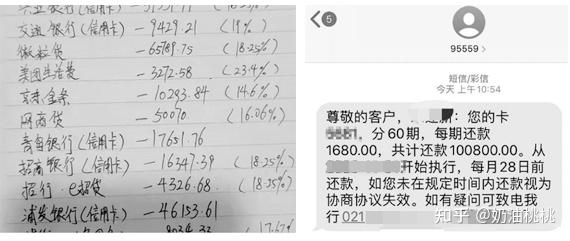 兴业银行(信用卡)
交通银行(信用卡) -9429.21 (19%)
微粒贷 -65789.75 (18.25%)
美团生活费 -3272.58 (23.4%)
京东金条 -10293.84 (14.6%)
网商贷 -50070 (16.06%)
青岛银行(信用卡) -17651.76
招商银行(信用卡) -16347.39 (18.25%)
招行·e招贷 -4326.68 (18.25%)
浦发银行(信用卡) -46153.61
5
95559
短信/彩信
今天 上午 10:54
尊敬的客户，
您的卡
分60期，每期还款
1680.00，共计还款100800.00。从
开始执行，每月28日前
还款，如您未在规定时间内还款视为
协商协议失效。如有疑问可致电我
行021
知乎 @奶油桃桃